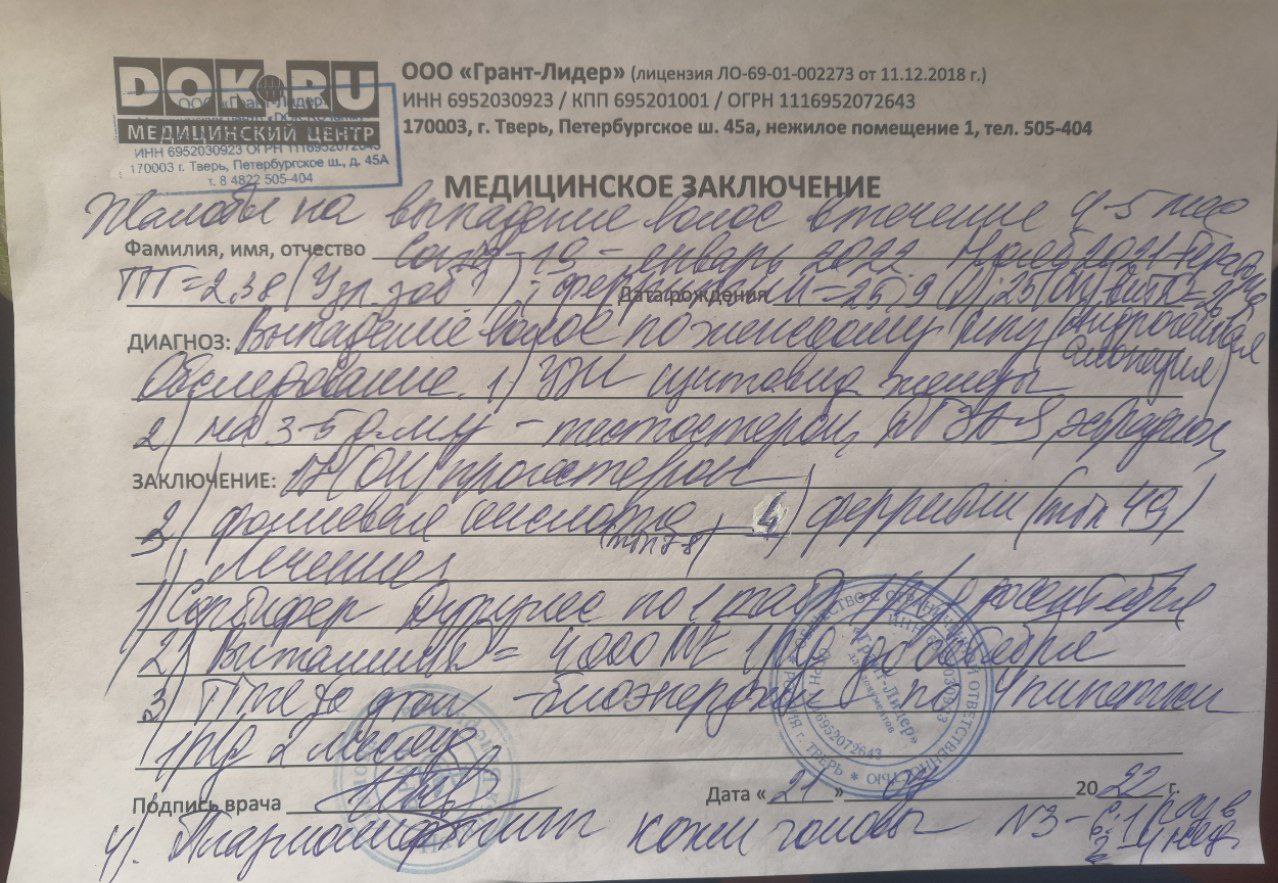 DOK.RU
МЕДИЦИНСКИЙ ЦЕНТР
ООО «Грант-Лидер» (лицензия ЛО-69-01-002273 от 11.12.2018 г.)
ИНН 6952030923 / КПП 695201001 / ОГРН 1116952072643
170003, г. Тверь, Петербургское ш. 45а, нежилое помещение 1, тел. 505-404
ООО «Грант-Лидер»
ИНН 6952030923 ОГРН 1116952072643
170003 г. Тверь, Петербургское ш., д. 45А
т. 8 4822 505-404
МЕДИЦИНСКОЕ ЗАКЛЮЧЕНИЕ
Жалобы на выпадение волос в течение 4-5 мес
Фамилия, имя, отчество 19 - январь 2022
ТТГ=2,38 (Узл. зоб) ; ферритин=25,9
Дата рождения
ДИАГНОЗ: Выпадение волос по женскому типу (андрогенная алопеция)
Обследование 1) УЗИ щитовид. железы
2) на 3-5 д.м.ц - тестостерон, ДГЭА-S, эстрадиол,
ЗАКЛЮЧЕНИЕ: 17(ОН)прогестерон
3) фолиевая кислота 4) ферритин
Лечение:
1) Сорбифер Дурулес по 1 таб 1 р/д до сентября
2) Витамин D = 4000 МЕ 1 р/д до октября
3) - биоэнерджи по 4 пипетки
1 р/д 2 месяца
Подпись врача Дата « 21 » 20 22 г.
4). Плазмолифтинг кожи головы N3 - 1 раз в
ОБЩЕСТВО С ОГРАНИЧЕННОЙ ОТВЕТСТВЕННОСТЬЮ
«Грант-Лидер»
для документов